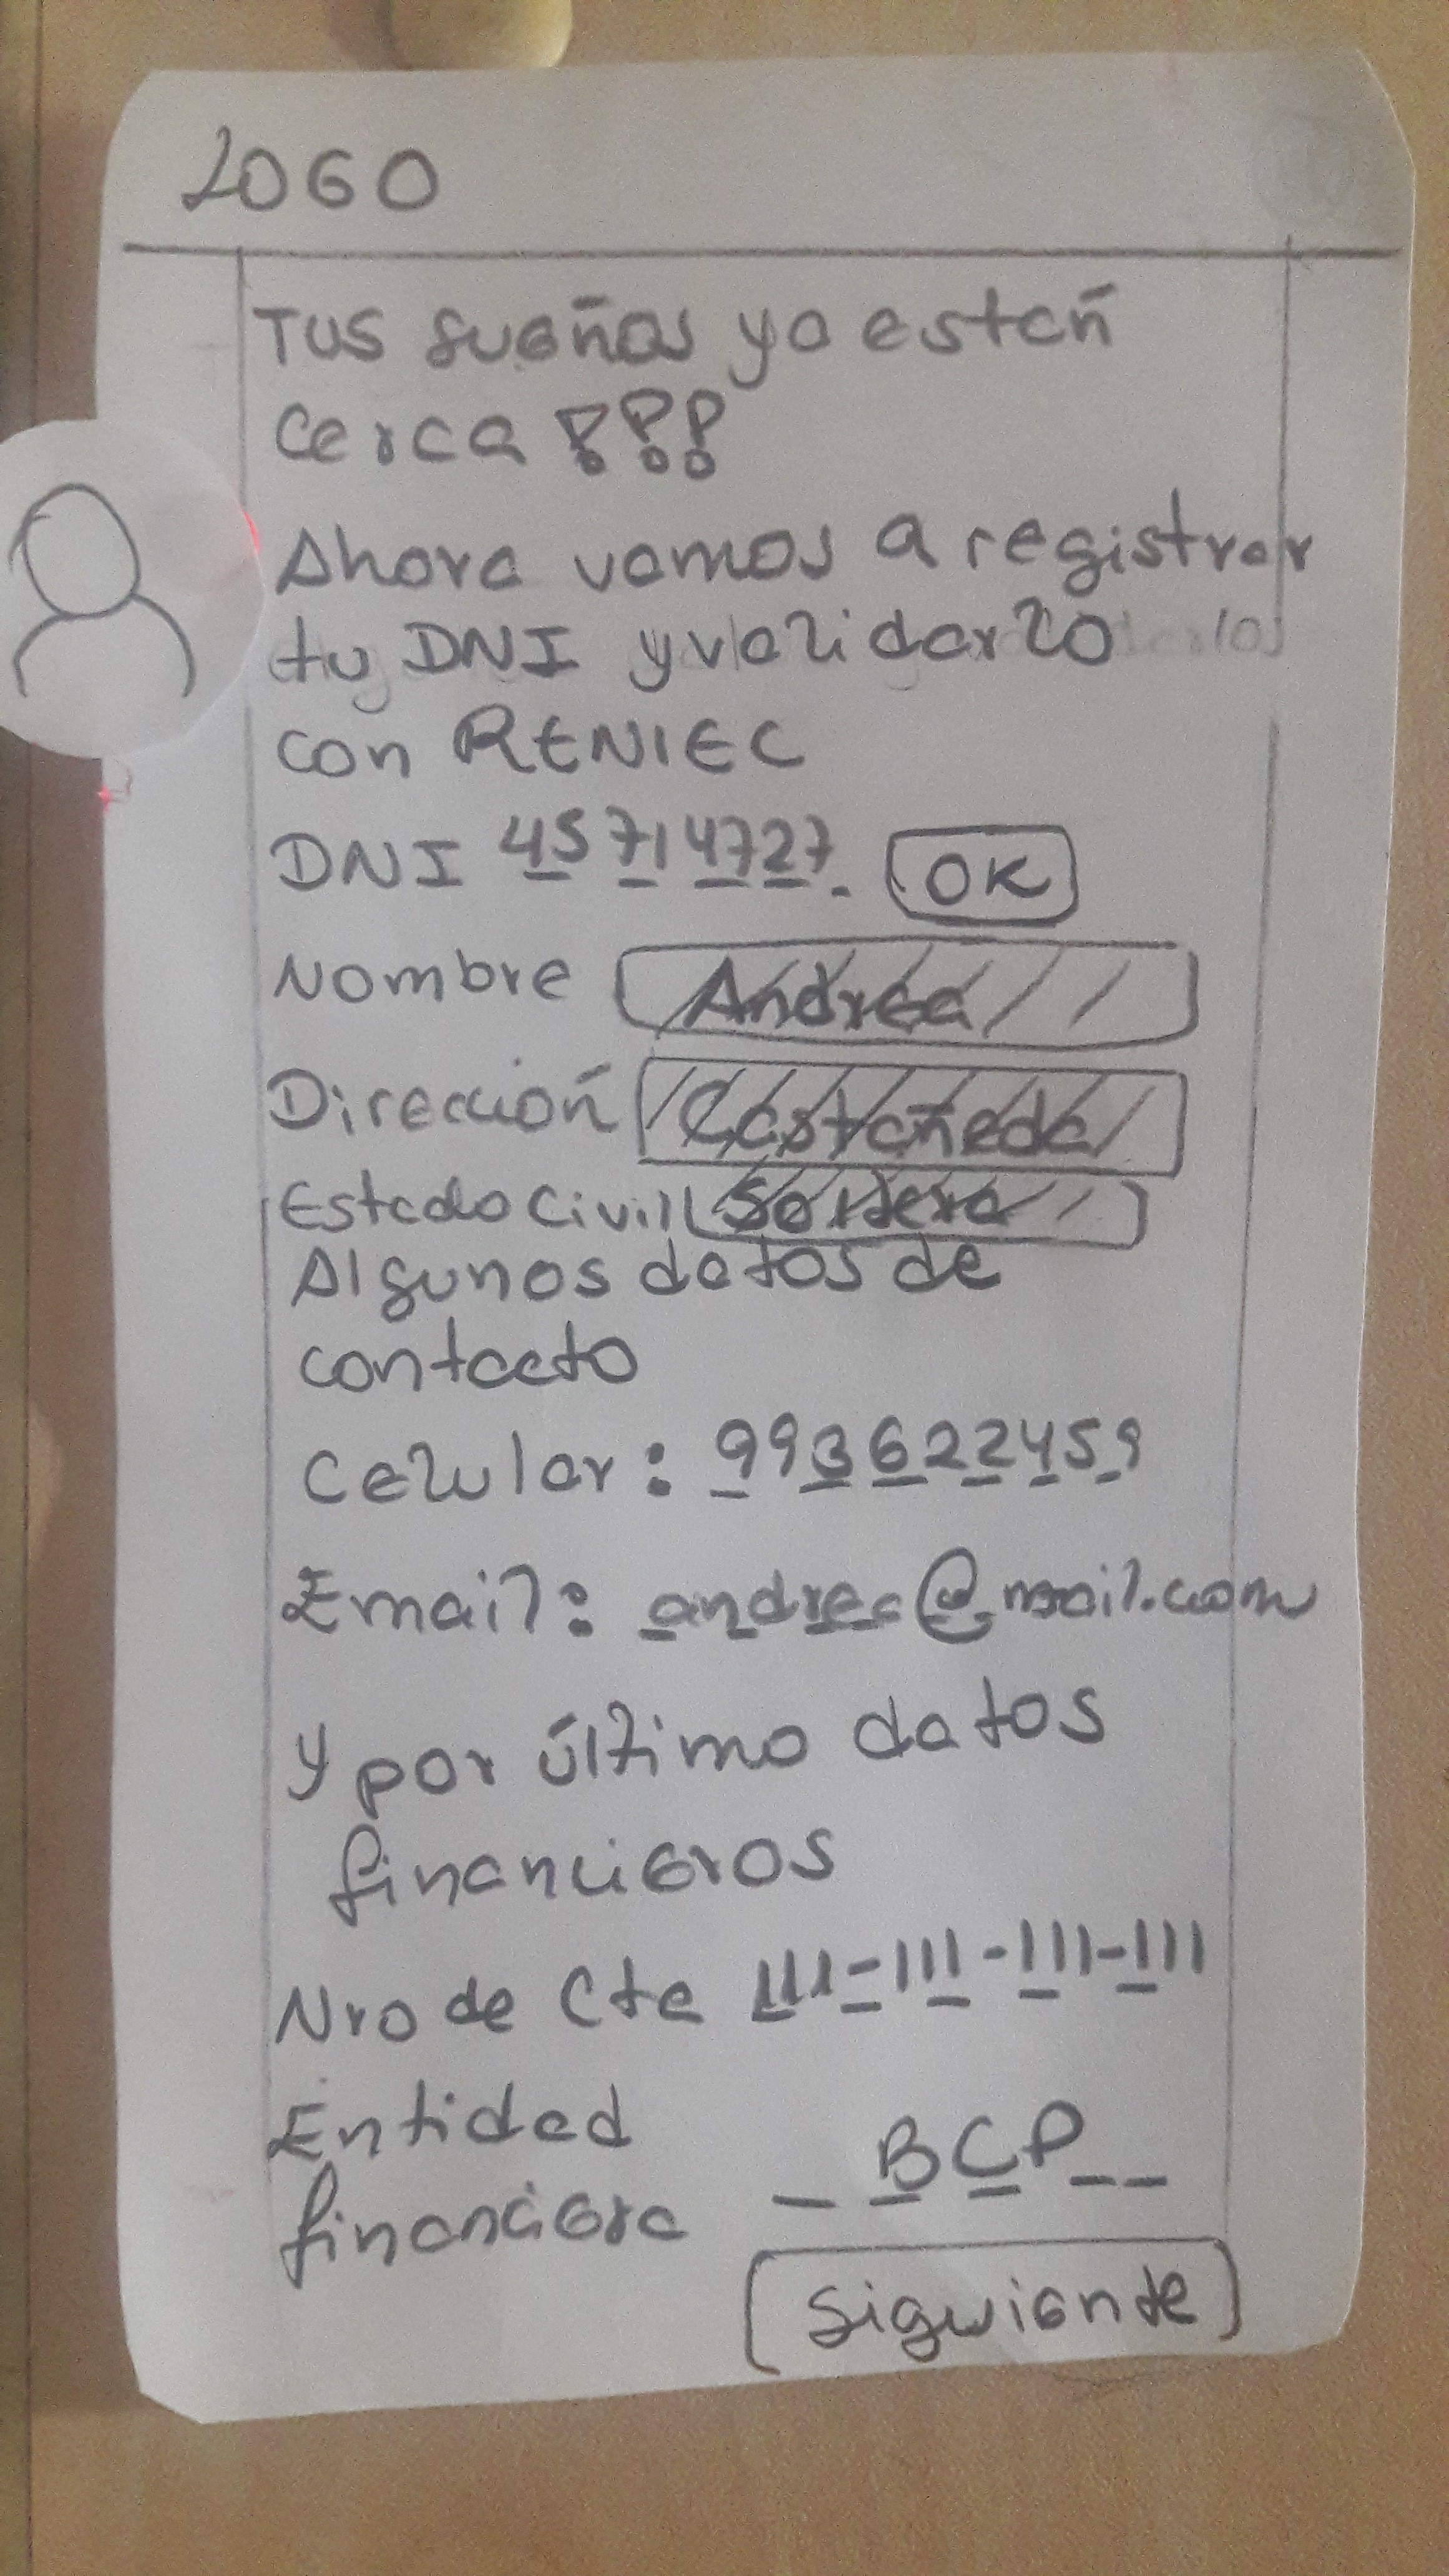 LOGO
Tus sueños ya están
cerca !!!
Ahora vamos a registrar
tu DNI y validarlo
con RENIEC
DNI 45714727 OK
Nombre Andrea
Dirección Castañeda
Estado Civil Soltera
Algunos datos de
contacto
Celular: 993622459
Email: andrea@mail.com
Y por último datos
financieros
Nro de Cta 111-111-111-111
Entidad
financiera BCP
Siguiente